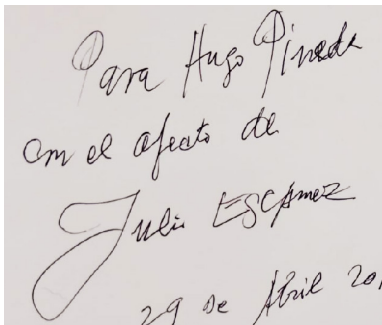 Para Hugo Pineda
con el afecto de
Julio EScámez
29 de Abril 20